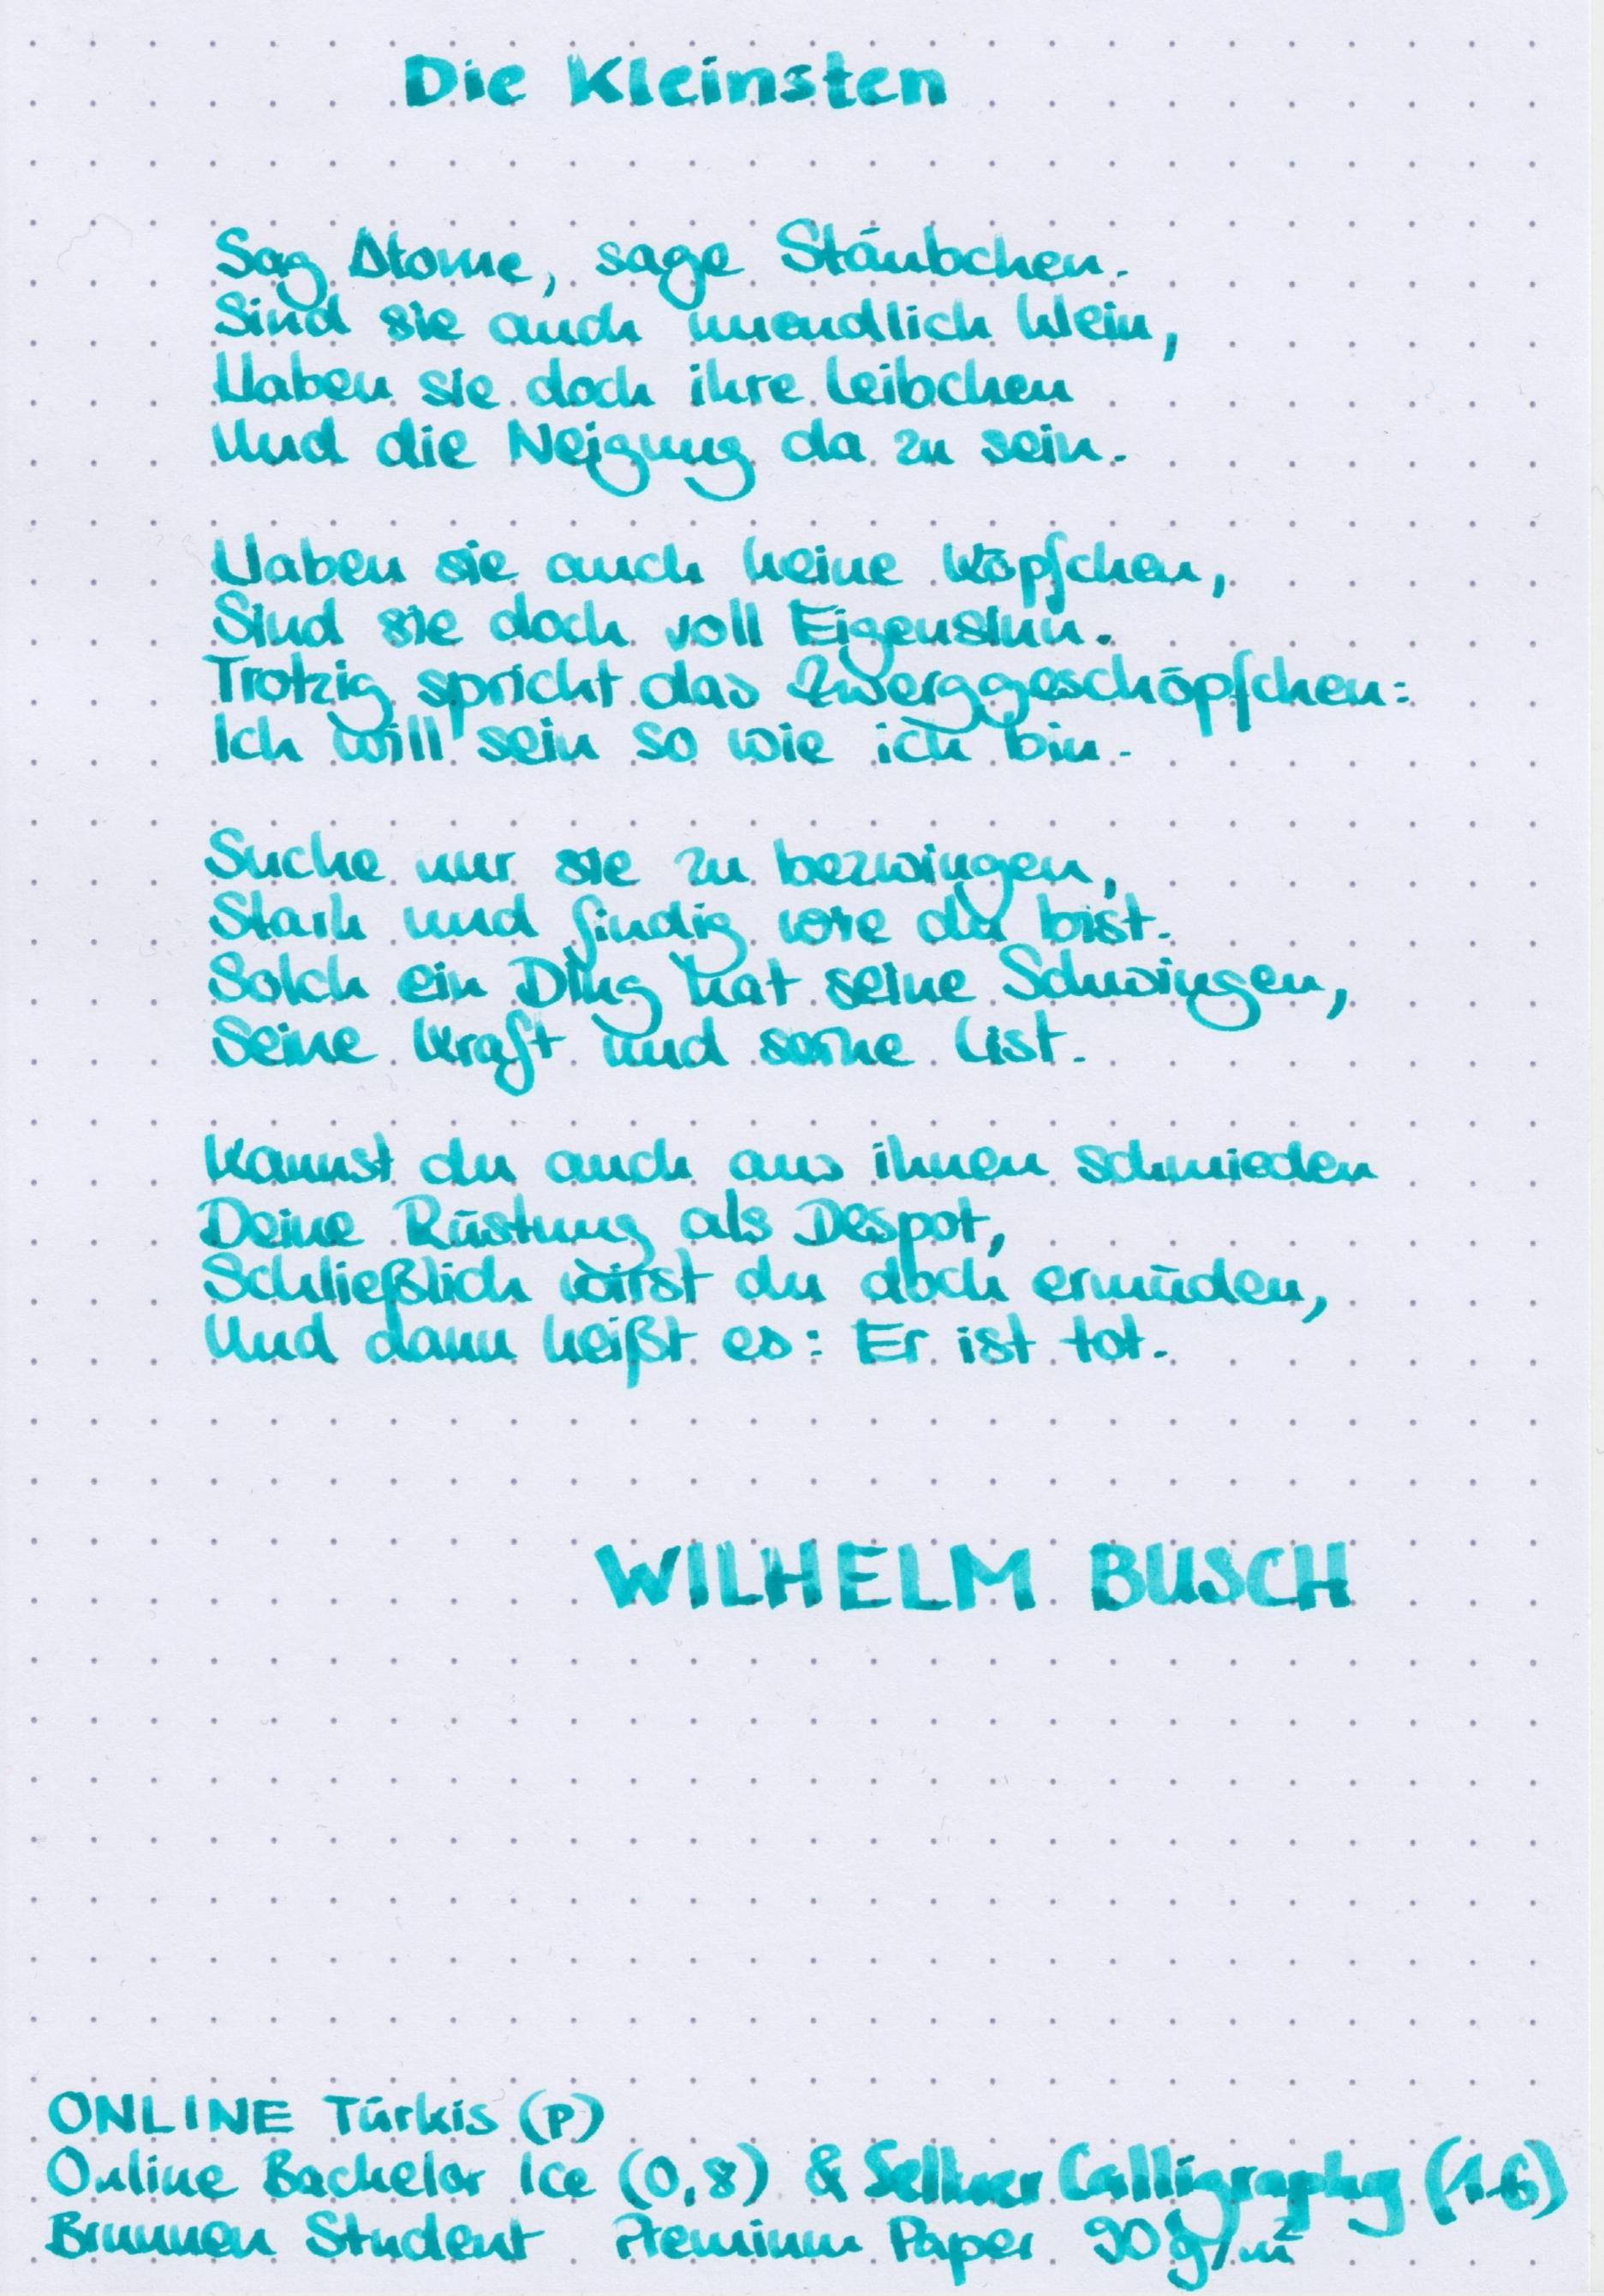 Die Kleinsten
Sag Atome, sage Stäubchen.
Sind sie auch unendlich klein,
Haben sie doch ihre Leibchen
Und die Neigung da zu sein.
Haben sie auch keine Köpfchen,
Sind sie doch voll Eigensinn.
Trotzig spricht das Zwerggeschöpfchen:
Ich will sein so wie ich bin.
Suche nur sie zu bezwingen,
Stark und findig wie du bist.
Solch ein Ding hat seine Schwingen,
Seine Kraft und seine List.
Kannst du auch aus ihnen schmieden
Deine Rüstung als Despot,
Schließlich wirst du doch ermüden,
Und dann heißt es: Er ist tot.
WILHELM BUSCH
ONLINE Türkis (P)
Online Bachelor Ice (0,8) & Calligraphy
Brunnen Student Premium Paper 90g/m²